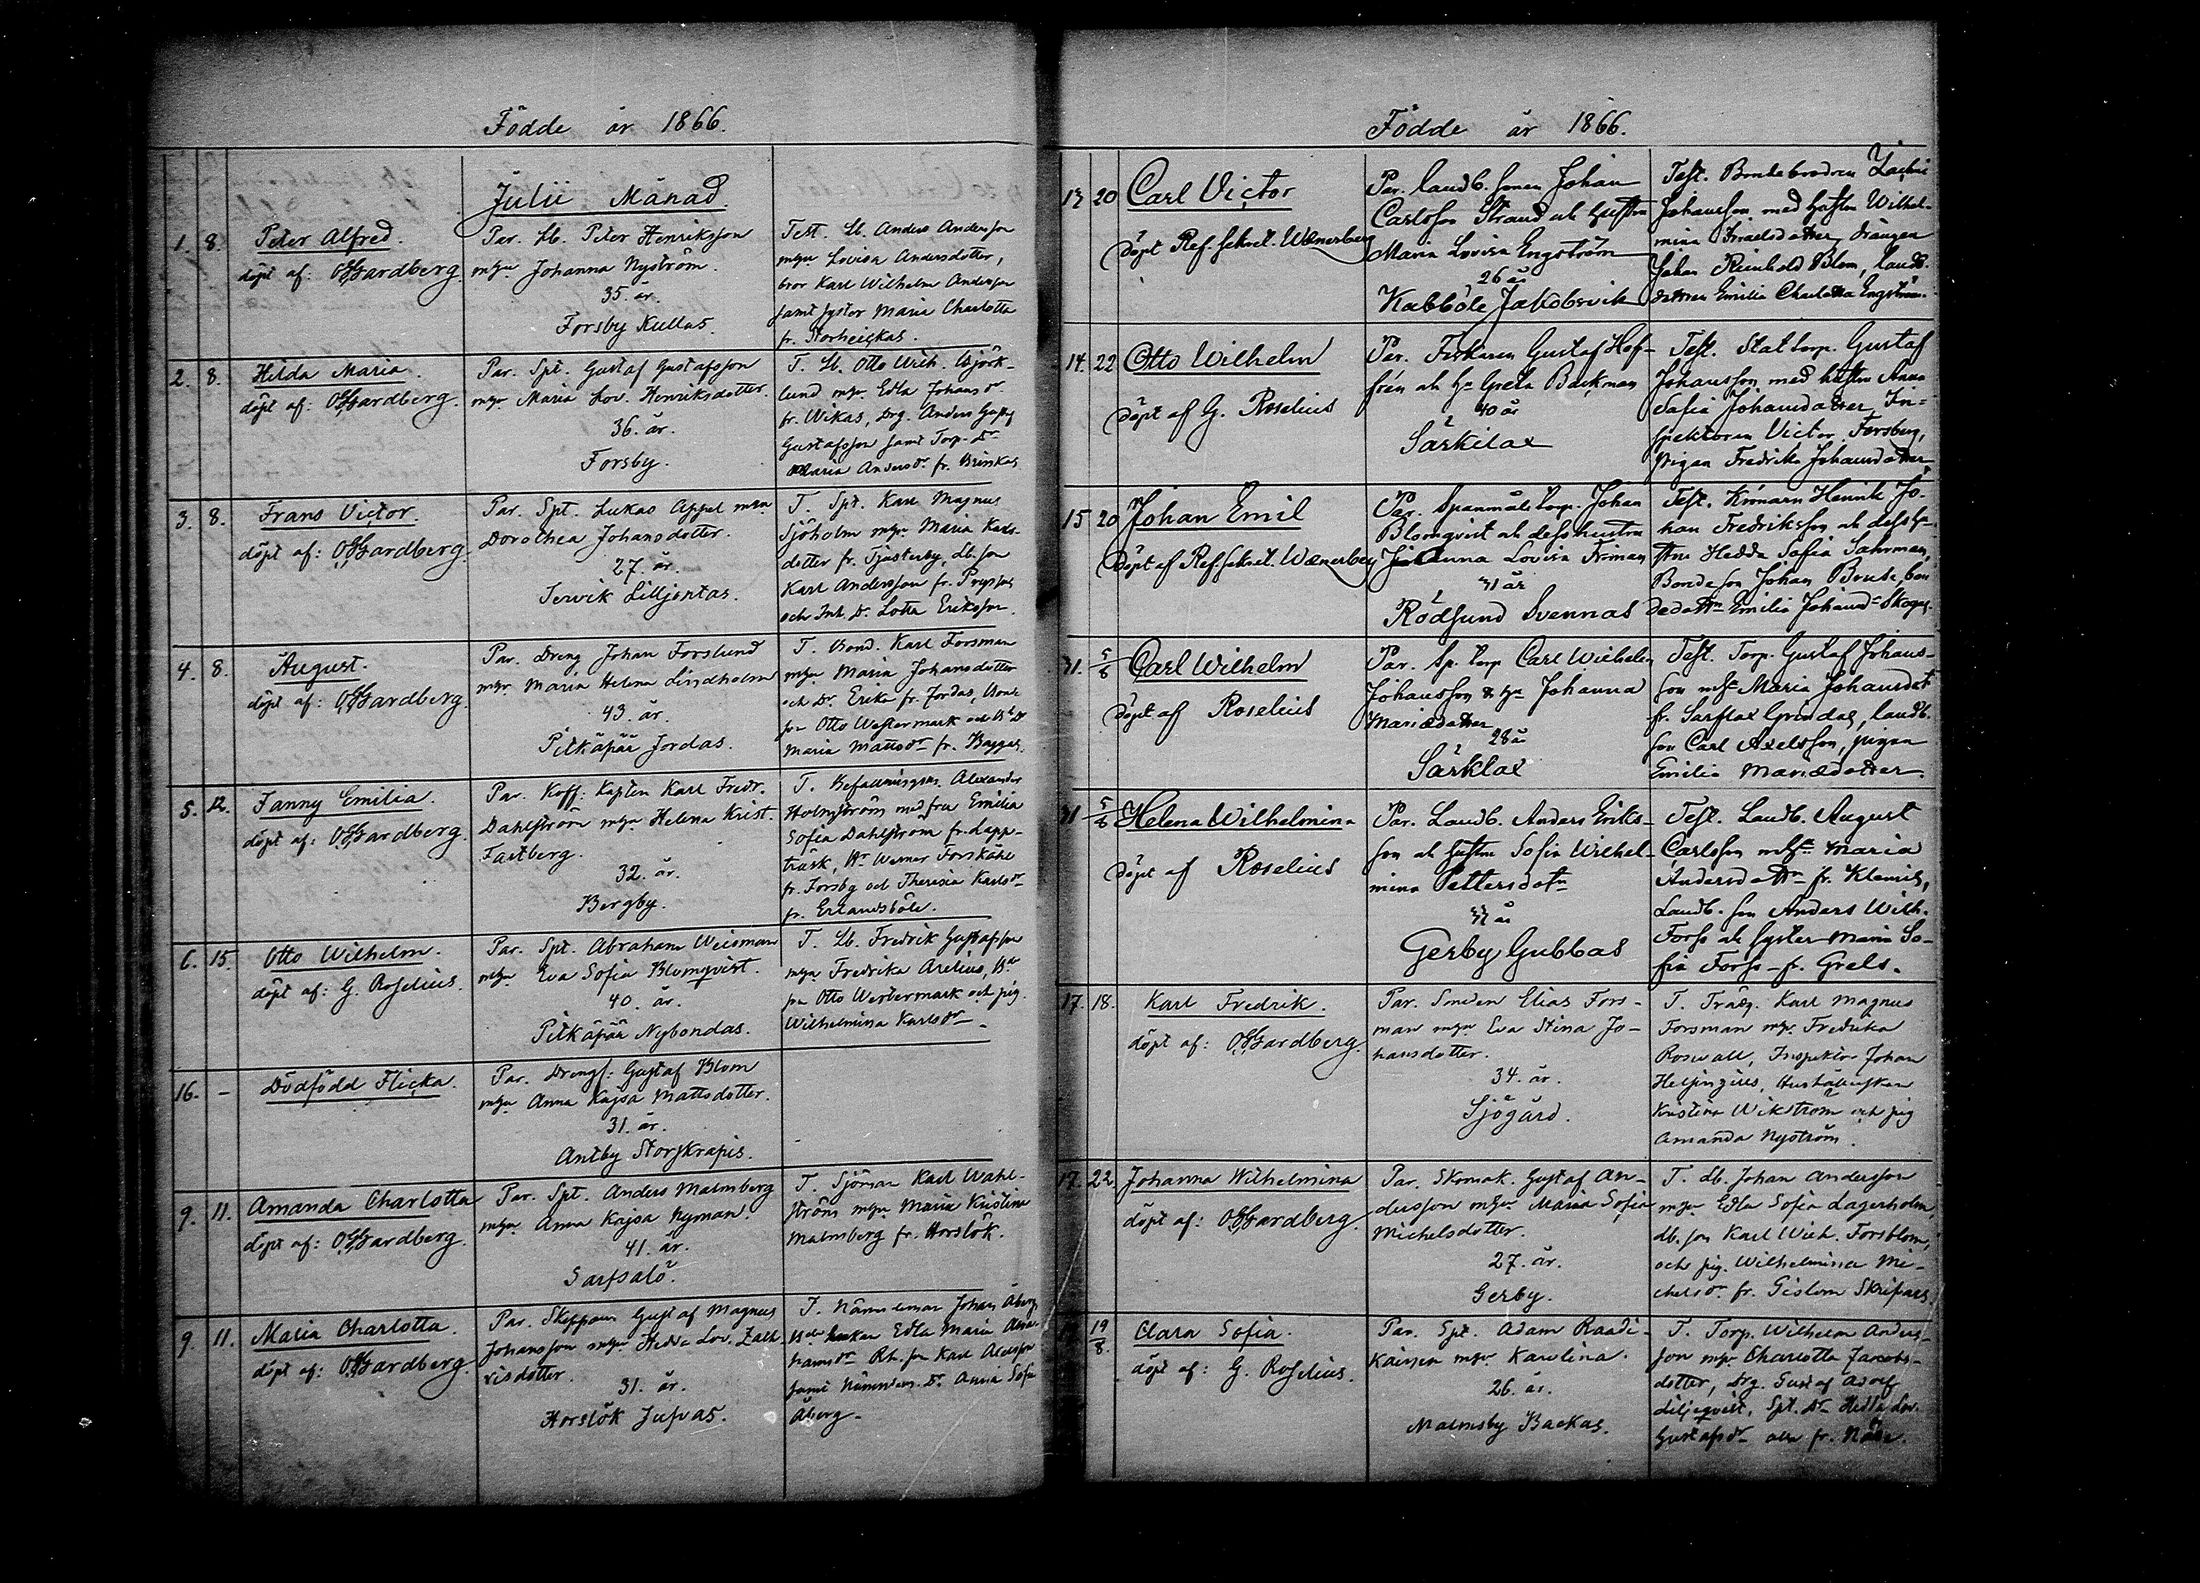 Födde år 1866.
Julii Månad.
1. 8. Peter Alfred.
döpt af: O. Gardberg.
Par. Lb. Peter Henriksson
m. h. Johanna Nyström.
35. år.
Forsby Kullas.
Test. Lb. Anders Andersson
Lovisa Andersdotter,
bror Karl Wilhelm Andersson
samt syster Maria Charlotta
2. 8. Hilda Maria.
döpt af: O. Gardberg.
Par. Spt. Gustaf Gustafsson
Maria Lov. Henriksdotter.
36. år.
Forsby.
T. Lb. Otto Wilh. Björk-
lund Edla Johansdr
fr. Wikas, Drg. Anders Gustaf
Gustafsson samt Torp. Dr
Maria Andersdr fr. Brinkas
3. 8. Frans Victor.
döpt af: O. Gardberg.
Par. Spt. Lukas Appel
Dorothea Johansdotter.
27. år.
Tervik Lilljontas.
T. Spt. Karl Magnus
Sjöholm Maria Karls-
dotter fr. Tjusterby, Lb. son
Karl Andersson fr.
och Inh. Dr. Lotta Eriksson.
4. 8. August.
döpt af: O. Gardberg.
Par. Dreng Johan Forslund
Maria Helena Lindholm
43. år.
Pitkäpää Jordas.
T. Bond. Karl Forsman
Maria Johansdotter
och Dr. Erika fr. Jordas, Bonde
son Otto Westermark och
Maria Mattsdr fr. Baggas.
5. 12. Fanny Emilia.
döpt af: O. Gardberg.
Par. Koff. Kapten Karl Fredr.
Dahlström Helena Krist.
Fastberg.
32. år.
Bergby.
T. Befallningsm. Alexander
Holmström med fru Emilia
Sofia Dahlström fr. Lapp-
träsk, Hr Werner Forskåhl
fr. Forsby och Theresia Karlsdr
fr. Erlandsböle.
6. 15. Otto Wilhelm.
döpt af: G. Roselius.
Par. Spt. Abraham Weisman
Eva Sofia Blomqvist.
40. år.
Pitkäpää Nybondas.
T. Lb. Fredrik Gustafsson
Fredrika Arelius,
Otto Westermark och pig.
Wilhelmina Karlsdr.
16. – Dödfödd Flicka.
Par. Drengs: Gustaf Blom
Anna Kajsa Mattsdotter.
31. år.
Antby Storskrapis.
9. 11. Amanda Charlotta
döpt af: O. Gardberg.
Par. Spt. Anders Malmberg
Anna Kajsa Nyman.
41. år.
Sarfsalö.
T. Sjöman Karl Wahl-
ström Maria Kristina
Malmberg fr. Horslök.
9. 11. Maria Charlotta.
döpt af: O. Gardberg.
Par. Skeppare Gustaf Magnus
Johansson Hedda Lov. Zach
risdotter.
31. år.
Horslök Jufvas.
T. Nämndeman Johan Åberg
Edla Maria
Karl
samt Nämndem. Dr. Anna Sofia
Åberg.
Födde år 1866.
13 20 Carl Victor
Döpt Ref. sekret. Wænerberg
Par. Landb. sonen Johan
Carlsson Strand och hustru
Maria Lovisa Engström
26 år
Kabböle Jakobsvik
Test. Bondebrodren
Johansson med hustru Wilhel-
mina Israelsdotter, drängen
Johan Reinhold Blom, landb.
dottren Emilia Charlotta Engström.
14. 22 Otto Wilhelm
Döpt af G. Roselius
Par. Fiskaren Gustaf Hof-
frén och Greta Backman
40 år
Särkilax
Test. Stattorp. Gustaf
Johansson med hustru Anna
Sofia Johansdotter, In-
spektoren Victor Forsberg,
pigan Fredrika Johansdotter
15 20 Johan Emil
Döpt af Ref. sekret. Wænerberg
Par. Spanmåls torp. Johan
Blomqvist och dess hustru
Johanna Lovisa Friman
31 år
Rödsund Svennas
Test. Henrik Jo-
han Fredriksson och dess hu-
stru Hedda Sofia Sahrman,
Bondeson Johan Bruse, bon
dedottr Emilia Johansdr Skogas.
31. 5/8 Carl Wilhelm
Döpt af Roselius
Par. Sp. torp Carl Wilhelm
Johansson & Johanna
Mariædotter
28 år
Särklax
Test. Torp. Gustaf Johans-
son Maria Johansdot
fr. Sarflax Grindas, landb.
son Carl Axelsson, pigan
Emilia Mariædotter.
31 5/8 Helena Wilhelmina
Döpt af Roselius
Par. Landb. Anders Eriks-
son och hustru Sofia Wilhel-
mina Pettersdotr
37 år
Gerby Gubbas
Test. Landb. August
Carlsson Maria
Andersdottr fr. Klemis,
Landb. son Anders Wilh.
Forss och syster Maria So-
fia Forss – fr. Grels.
17. 18. Karl Fredrik.
döpt af: O. Gardberg.
Par. Smeden Elias Fors-
man Eva Stina Jo-
hansdotter.
34. år.
Sjögård.
T. Trädg. Karl Magnus
Forsman Fredrika
Rosvall, Inspektor Johan
Helsingius, Hushållerskan
Kristina Wikström och pig
Amanda Nyström.
17. 22 Johanna Wilhelmina
döpt af: O. Gardberg.
Par. Skomak. Gustaf An-
dersson Maria Sofia
Michelsdotter.
27. år.
Gerby.
T. Lb. Johan Andersson
Edla Sofia Lagerholm,
Lb. son Karl Wilh. Forsblom,
och pig. Wilhelmina Mi-
chelsdr fr. Gislom Skrifvars.
19/8. Clara Sofia.
döpt af: G. Roselius.
Par. Spt. Adam Raadi-
kainen Karolina.
26. år.
Malmsby Backas.
T. Torp. Wilhelm Anders-
son Charlotta Jacobs-
dotter, Drg. Gustaf Adolf
Liljeqvist, Spt. Dr Hedda Lov.
Gustafsdr alla fr.